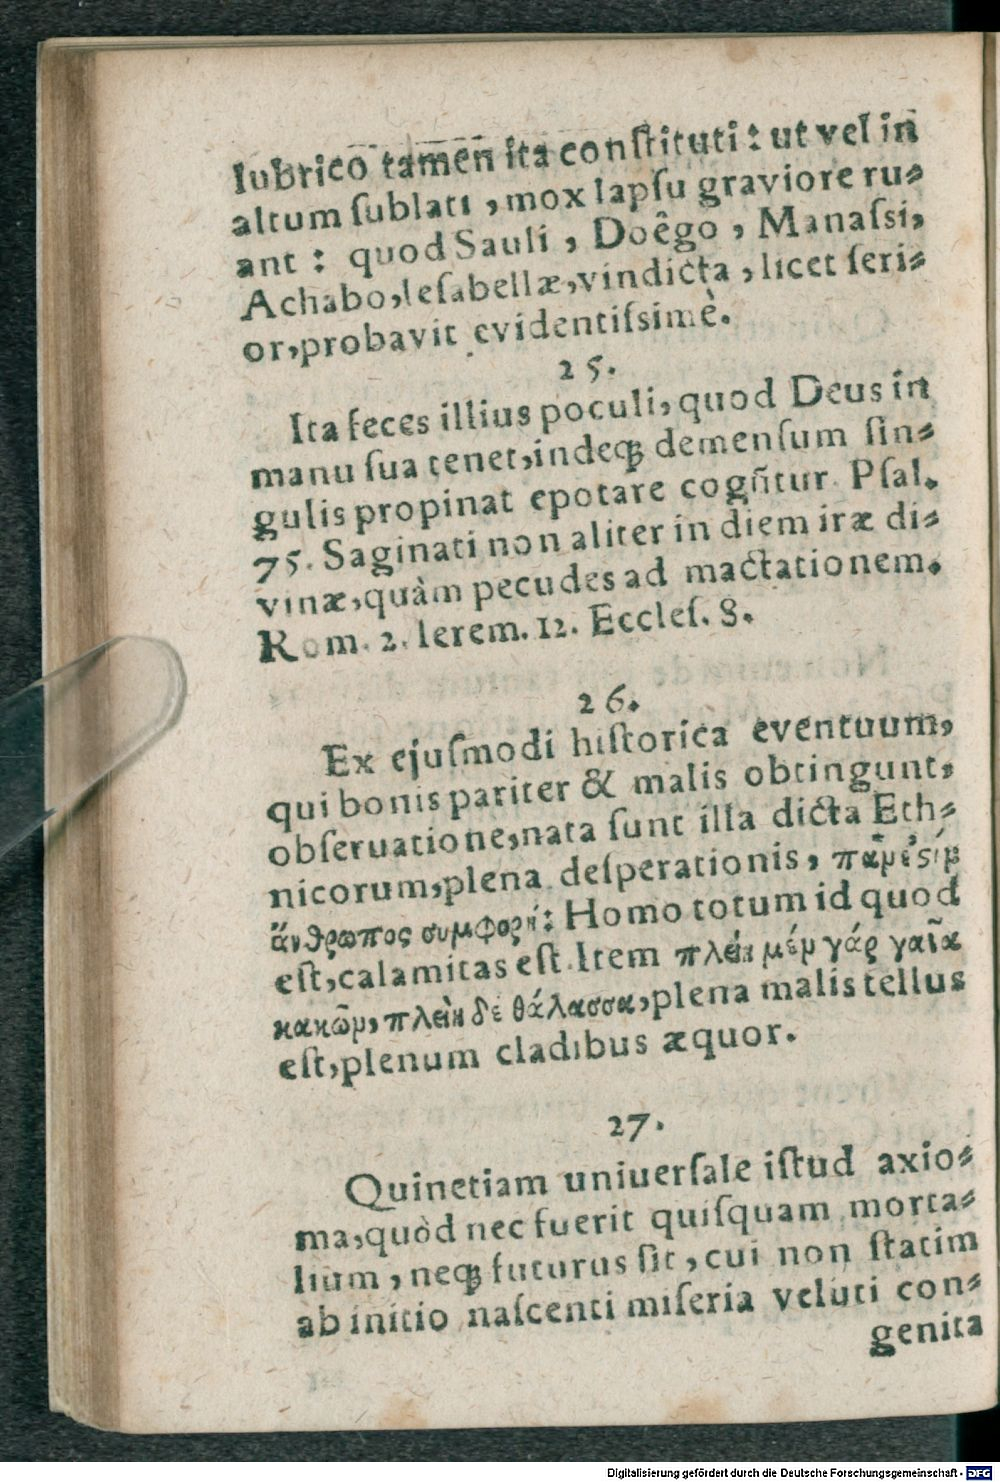 lubrico tamen ita conſtituti: ut vel in
altum ſublati, mox lapſu graviore ru⸗
ant: quod Sauli, Doêgo, Manaſsi,
Achabo, Ieſabellæ, vindicta, licet ſeri⸗
or, probavit evidentiſsimè.
25.
Ita feces illius poculi, quod Deus in
manu ſua tenet, indeqꝫ demenſum ſin⸗
gulis propinat epotare cogūtur Pſal.
75. Saginati non aliter in diem iræ di⸗
vinæ, quàm pecudes ad mactationem.
Rom. 2. Ierem. 12. Eccleſ. 8.
26.
Ex ejuſmodi hiſtorica eventuum,
qui bonis pariter & malis obtingunt,
obſeruatione, nata ſunt illa dicta Eth⸗
nicorum, plena deſperationis, πᾶμ ἐςίμ
ἄνθρωπος συμφορή: Homo totum id quod
eſt, calamitas eſt. Item πλείη μέμ γάρ γαῖα
κακῶμ, πλείη δὲ θάλασσα, plena malis tellus
eſt, plenum cladibus æquor.
27.
Quinetiam uniuerſale iſtud axio⸗
ma, quòd nec fuerit quiſquam morta⸗
lium, neqꝫ futurus ſit, cui non ſtatim
ab initio naſcenti miſeria veluti con⸗
genita
Digitalisierung gefördert durch die Deutsche Forschungsgemeinschaft - DFG